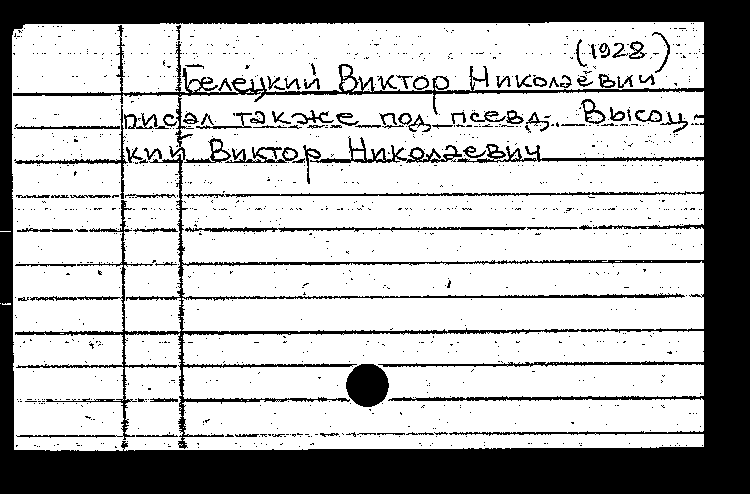 (1928)
Белецкий Виктор Николаевич.
писал также под псевд. Высоц-
кий Виктор Николаевич